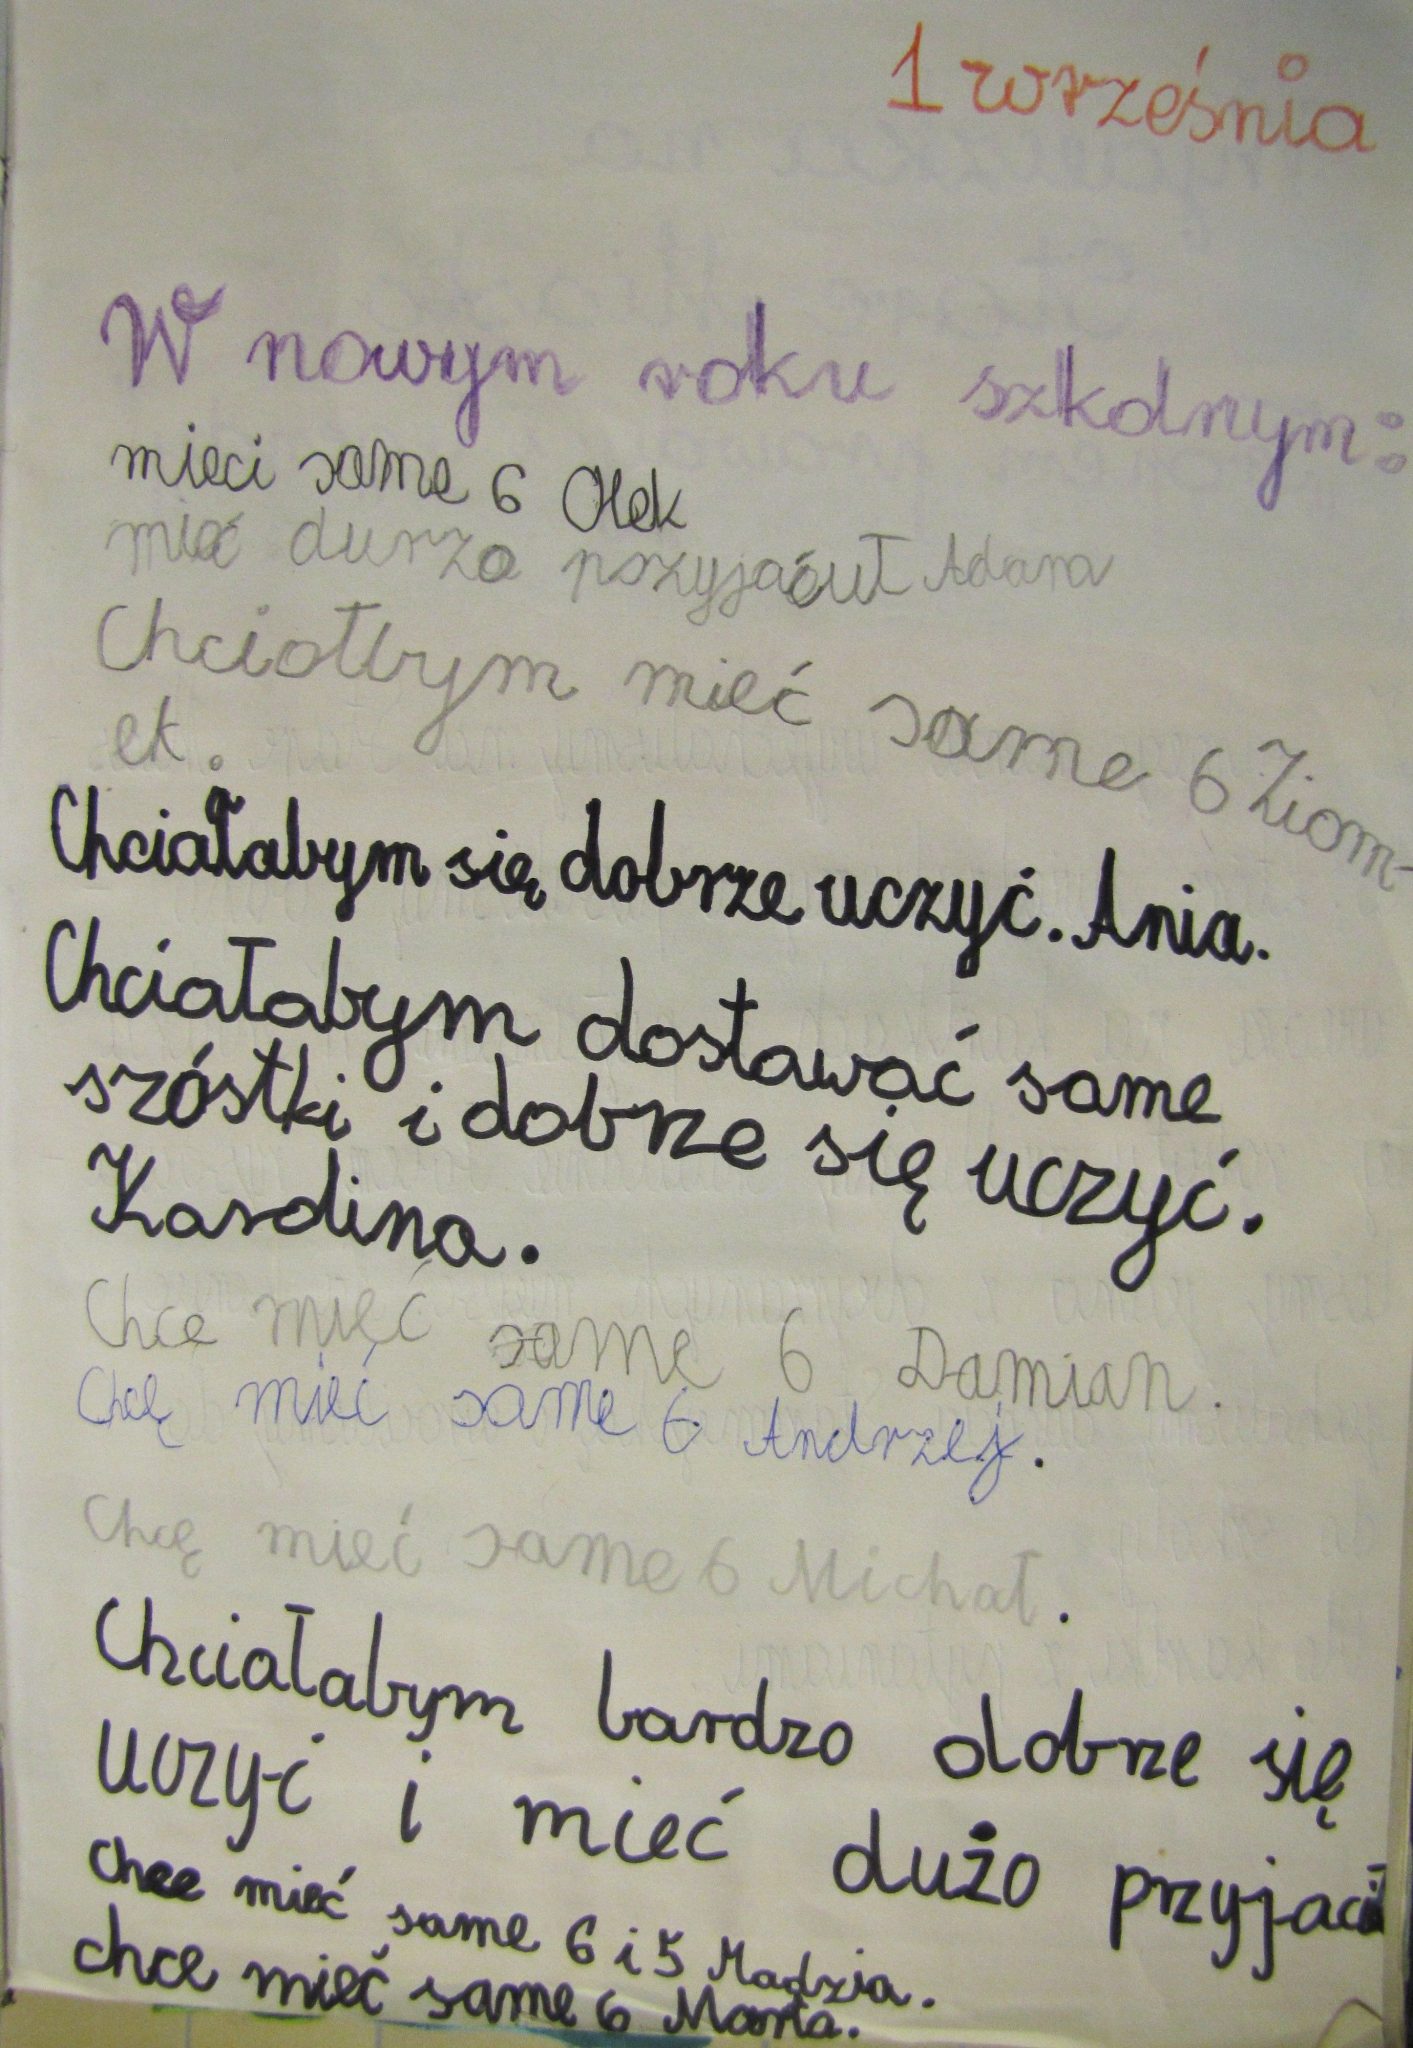 1 września
W nowym roku szkolnym:
mieci same 6 Olek
mieć durzo pszyjaćuł Adam
Chciołbym mieć same 6 Ziom-
ek.
Chciałabym się dobrze uczyć. Ania.
Chciałabym dostawać same
szóstki i dobrze się uczyć.
Karolina.
Chce mięć same 6 Damian.
Chcę mieć same 6 Andrzej.
Chcę mieć same 6 Michał.
Chciałabym bardzo dobrze się
uczyć i mieć dużo przyjaciół
Chce mieć same 6 i 5 Madzia.
chce mieć same 6 Marta.